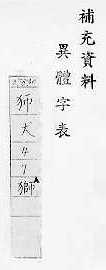 補充資料
異體字表
狮
犬
4
7
獅